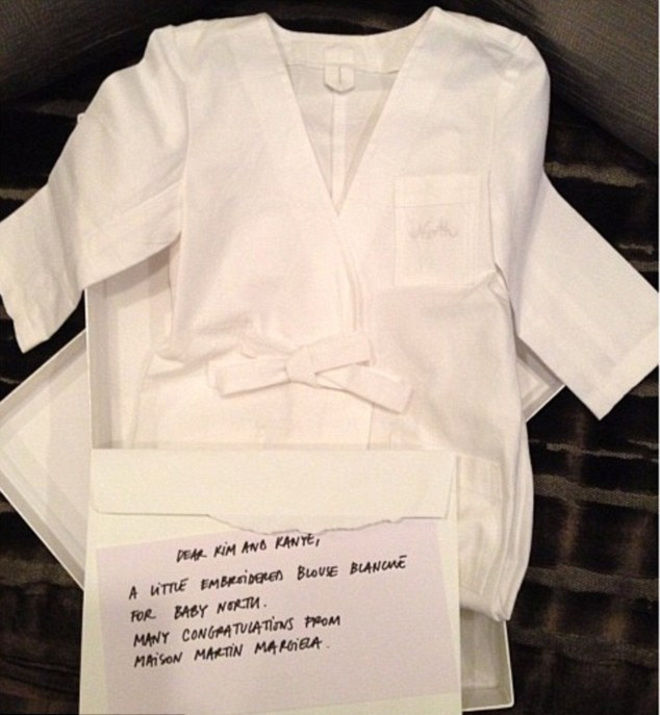 North
DEAR KIM AND KANYE,
A LITTLE EMBROIDERED BLOUSE BLANCHE
FOR BABY NORTH.
MANY CONGRATULATIONS FROM
MAISON MARTIN MARGIELA.